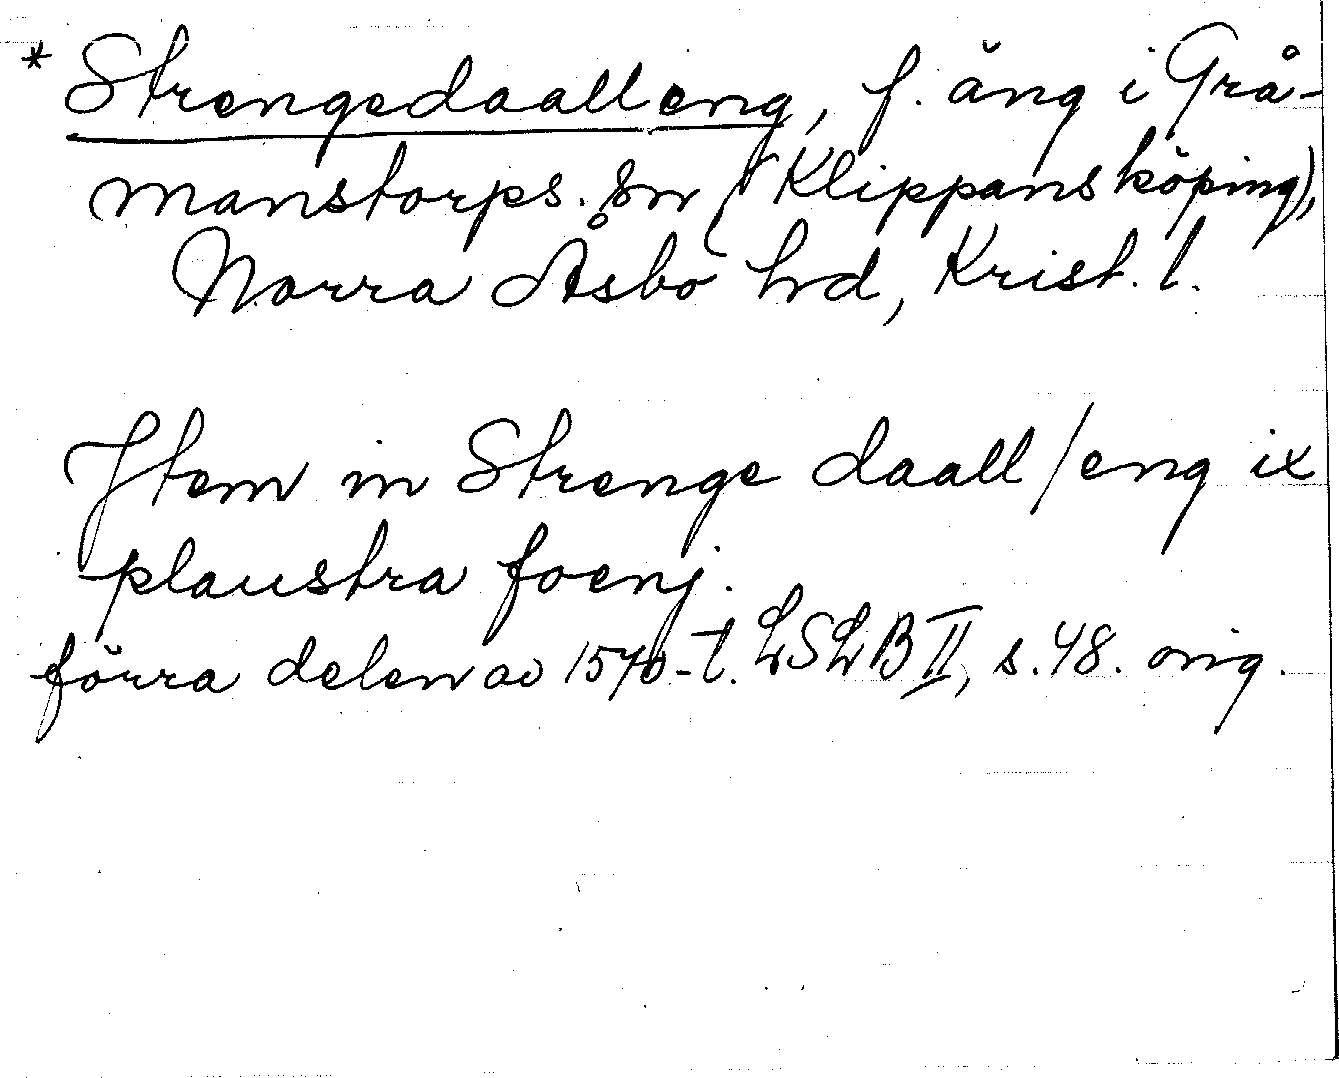 * Strengedaalleng, f. äng i Grå-
manstorps. sn (Klippans köping),
Norra Åsbo hd, Krist. l.
Jtem in Strenge daall/eng ix
plaustra foenj.
förra delen av 1570-t. LSLB II, s. 48. orig.